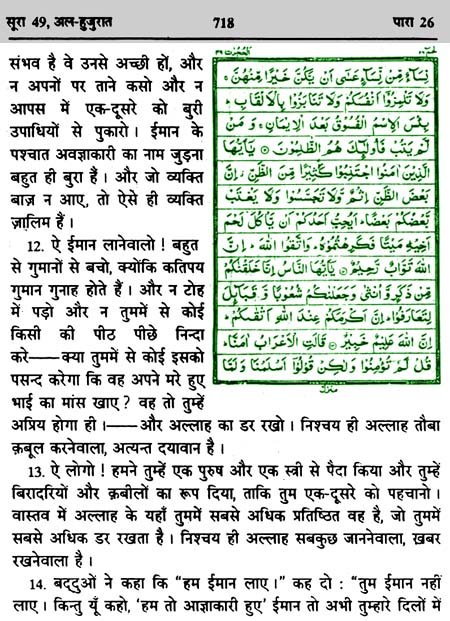 सूरा 49, अल-हुजुरात 718 पारा 26
संभव है वे उनसे अच्छी हों, और
न अपनों पर ताने कसो और न
आपस में एक-दूसरे को बुरी
उपाधियों से पुकारो। ईमान के
पश्चात अवज्ञाकारी का नाम जुड़ना
बहुत ही बुरा है। और जो व्यक्ति
बाज़ न आए, तो ऐसे ही व्यक्ति
ज़ालिम हैं।
12. ऐ ईमान लानेवालो! बहुत
से गुमानों से बचो, क्योंकि कतिपय
गुमान गुनाह होते हैं। और न टोह
में पड़ो और न तुममें से कोई
किसी की पीठ पीछे निन्दा
करे——क्या तुममें से कोई इसको
पसन्द करेगा कि वह अपने मरे हुए
भाई का मांस खाए? वह तो तुम्हें
अप्रिय होगा ही।——और अल्लाह का डर रखो। निश्चय ही अल्लाह तौबा
क़बूल करनेवाला, अत्यन्त दयावान है।
13. ऐ लोगो! हमने तुम्हें एक पुरुष और एक स्त्री से पैदा किया और तुम्हें
बिरादरियों और क़बीलों का रूप दिया, ताकि तुम एक-दूसरे को पहचानो।
वास्तव में अल्लाह के यहाँ तुममें सबसे अधिक प्रतिष्ठित वह है, जो तुममें
सबसे अधिक डर रखता है। निश्चय ही अल्लाह सबकुछ जाननेवाला, ख़बर
रखनेवाला है।
14. बद्दुओं ने कहा कि “हम ईमान लाए।” कह दो : “तुम ईमान नहीं
लाए। किन्तु यूँ कहो, ‘हम तो आज्ञाकारी हुए’ ईमान तो अभी तुम्हारे दिलों में
نِسَآءٌ مِّنْ نِّسَآءٍ عَسٰٓى اَنْ يَّكُنَّ خَيْرًا مِّنْهُنَّ ۚ
وَلَا تَلْمِزُوْٓا اَنْفُسَكُمْ وَلَا تَنَابَزُوْا بِالْاَلْقَابِ ؕ
بِئْسَ الِاسْمُ الْفُسُوْقُ بَعْدَ الْاِيْمَانِ ۚ وَمَنْ
لَّمْ يَتُبْ فَاُولٰٓئِكَ هُمُ الظّٰلِمُوْنَ ۝ يٰٓاَيُّهَا
الَّذِيْنَ اٰمَنُوا اجْتَنِبُوْا كَثِيْرًا مِّنَ الظَّنِّ ۡ اِنَّ
بَعْضَ الظَّنِّ اِثْمٌ وَّلَا تَجَسَّسُوْا وَلَا يَغْتَبْ
بَّعْضُكُمْ بَعْضًا ؕ اَيُحِبُّ اَحَدُكُمْ اَنْ يَّاْكُلَ لَحْمَ
اَخِيْهِ مَيْتًا فَكَرِهْتُمُوْهُ ؕ وَاتَّقُوا اللّٰهَ ؕ اِنَّ
اللّٰهَ تَوَّابٌ رَّحِيْمٌ ۝ يٰٓاَيُّهَا النَّاسُ اِنَّا خَلَقْنٰكُمْ
مِّنْ ذَكَرٍ وَّاُنْثٰى وَجَعَلْنٰكُمْ شُعُوْبًا وَّقَبَآئِلَ
لِتَعَارَفُوْا ؕ اِنَّ اَكْرَمَكُمْ عِنْدَ اللّٰهِ اَتْقٰىكُمْ ؕ
اِنَّ اللّٰهَ عَلِيْمٌ خَبِيْرٌ ۝ قَالَتِ الْاَعْرَابُ اٰمَنَّا ؕ
قُلْ لَّمْ تُؤْمِنُوْا وَلٰكِنْ قُوْلُوْٓا اَسْلَمْنَا وَلَمَّا